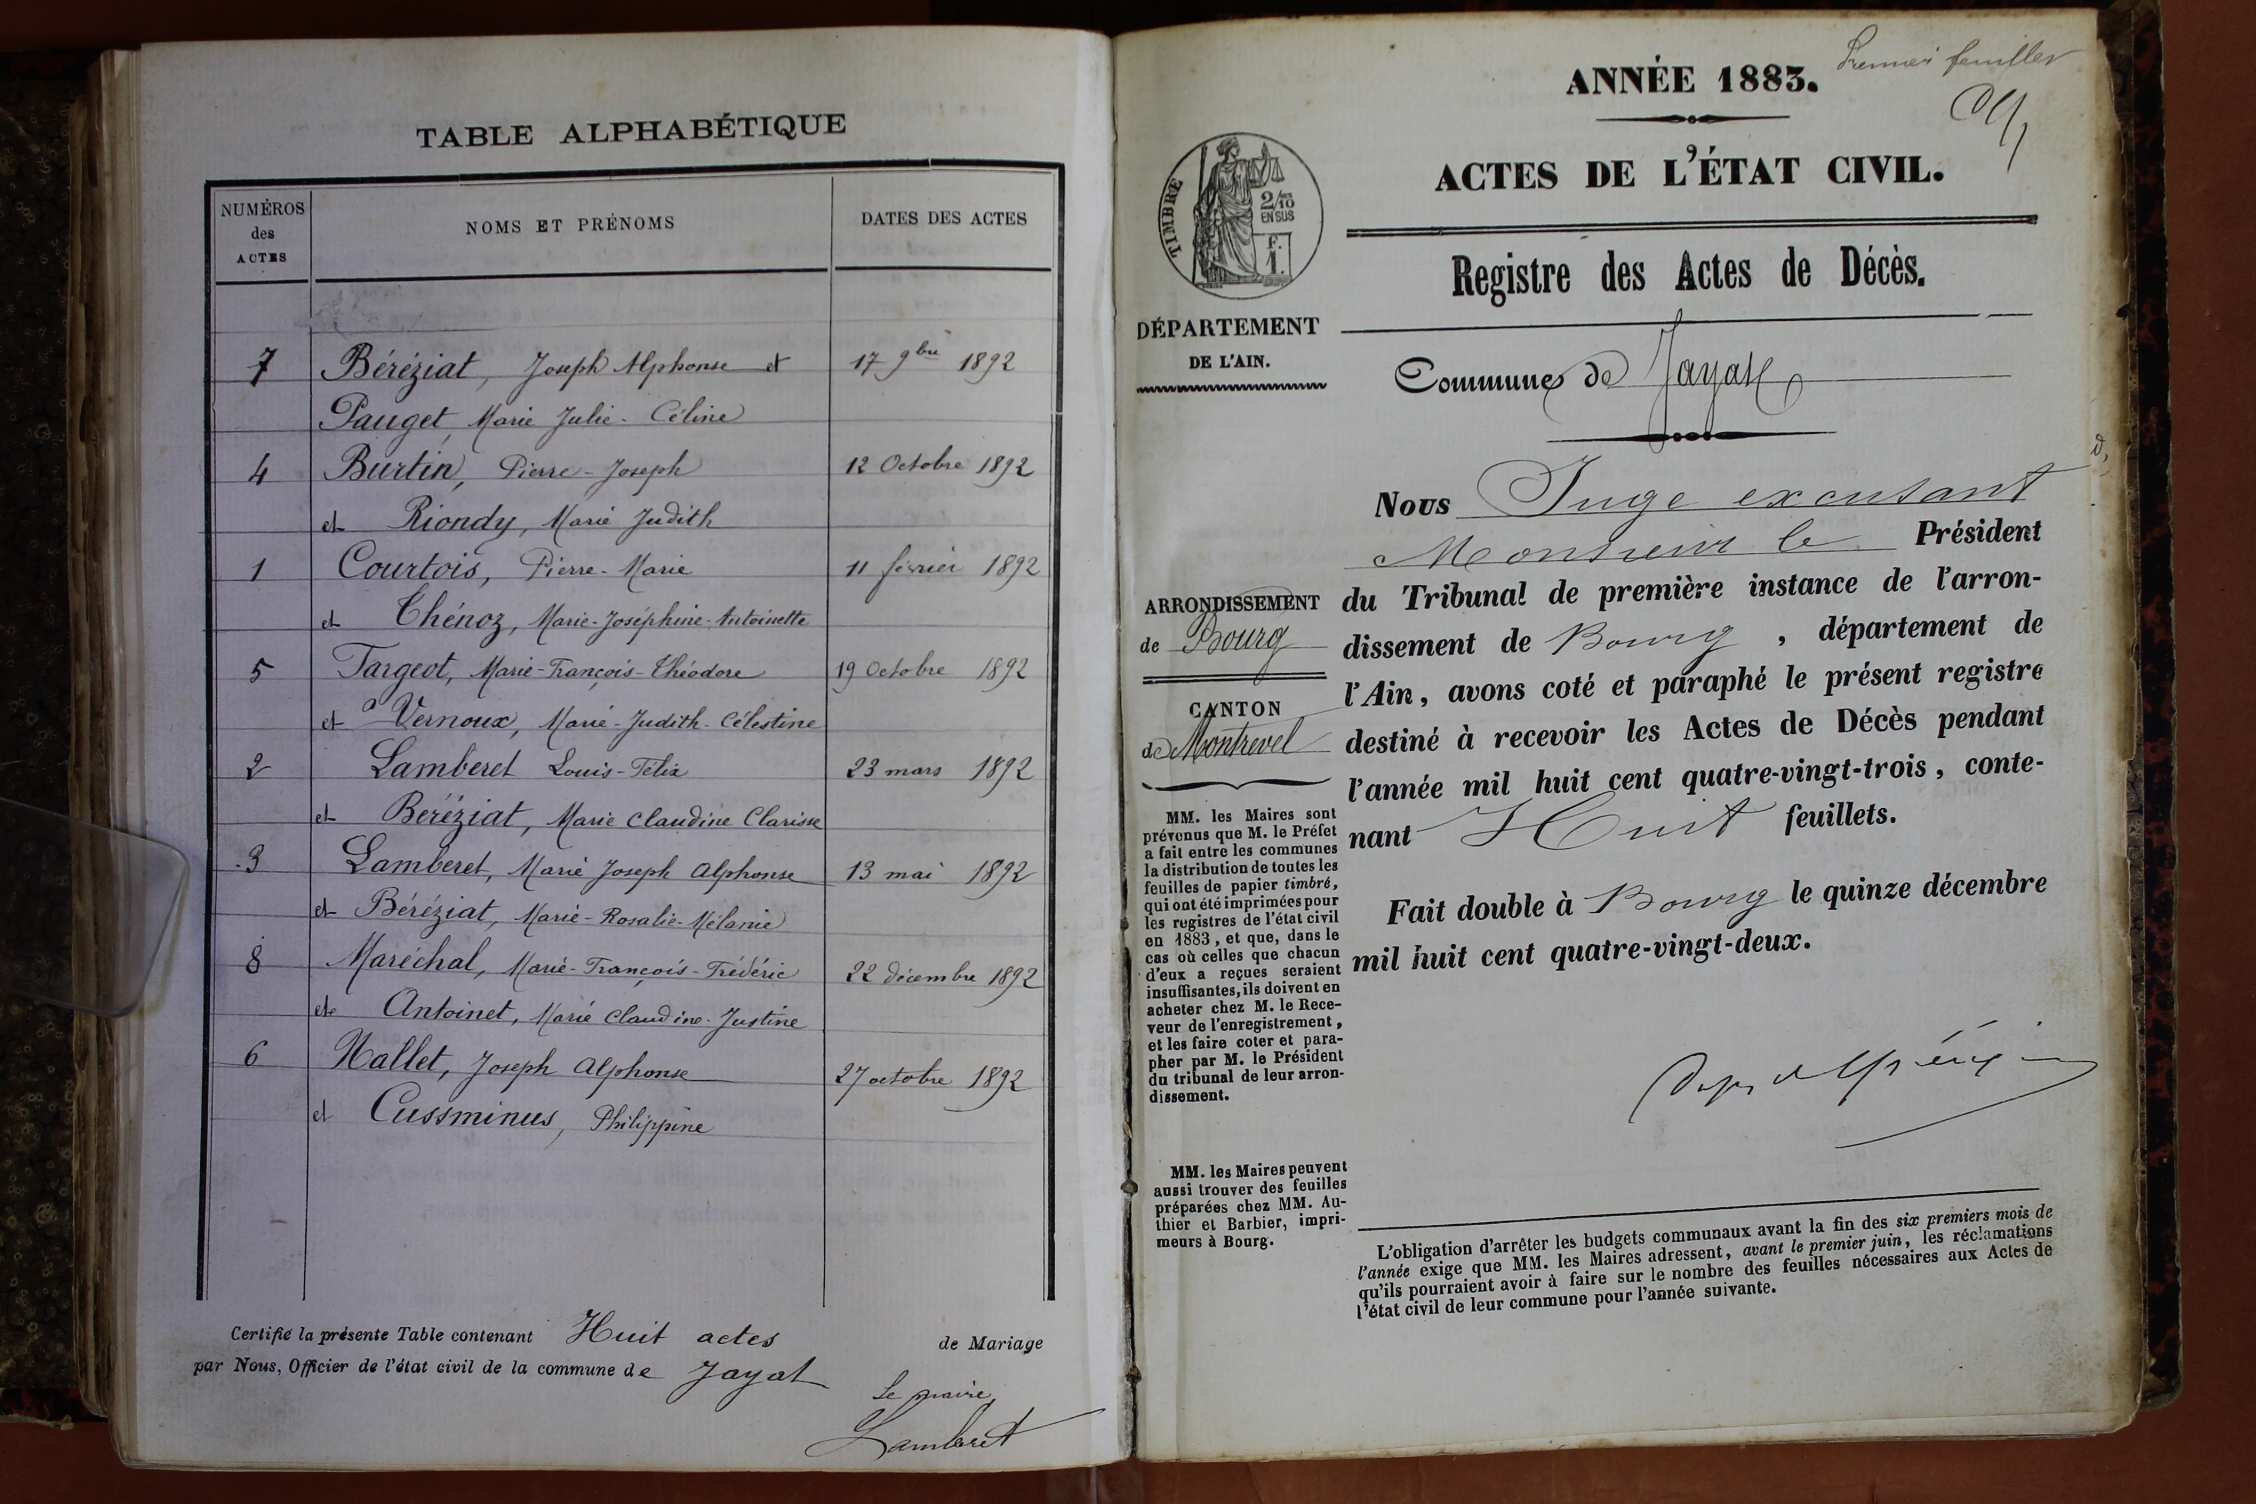 TABLE ALPHABÉTIQUE
NUMÉROS des ACTES
NOMS ET PRÉNOMS
DATES DES ACTES
7 Béréziat, Joseph Alphonse et 17 9bre 1892
Pauget, Marie Julie-Céline
4 Burtin, Pierre-Joseph 12 Octobre 1892
et Riondy, Marie Judith
1 Courtois, Pierre-Marie 11 février 1892
et Thénoz, Marie-Joséphine-Antoinette
5 Targeot, Marie-François-Théodore 19 Octobre 1892
et Vernoux, Marie-Judith-Célestine
2 Lamberet Louis-Félix 23 mars 1892
et Béréziat, Marie Claudine Clarisse
3 Lamberet, Marie Joseph Alphonse 13 mai 1892
et Béréziat, Marie-Rosalie-Mélanie
8 Maréchal, Marie-François-Frédéric 22 décembre 1892
et Antoinet, Marie Claudine-Justine
6 Nallet, Joseph Alphonse 27 octobre 1892
et Cussminus, Philippine
Certifié la présente Table contenant Huit actes de Mariage
par Nous, Officier de l'état civil de la commune de Jayat
Le maire,
Lamberet
Premier feuillet
ANNÉE 1883.
ACTES DE L'ÉTAT CIVIL.
Registre des Actes de Décès.
TIMBRE
2/10
EN SUS
f.
1.
DÉPARTEMENT
DE L'AIN.
Commune de Jayat
ARRONDISSEMENT
de Bourg
CANTON
de Montrevel
MM. les Maires sont
prévenus que M. le Préfet
a fait entre les communes
la distribution de toutes les
feuilles de papier timbré,
qui ont été imprimées pour
les registres de l'état civil
en 1883, et que, dans le
cas où celles que chacun
d'eux a reçues seraient
insuffisantes, ils doivent en
acheter chez M. le Rece-
veur de l'enregistrement,
et les faire coter et para-
pher par M. le Président
du tribunal de leur arron-
dissement.
MM. les Maires peuvent
aussi trouver des feuilles
préparées chez MM. Au-
thier et Barbier, impri-
meurs à Bourg.
Nous Juge excusant
Monsieur le Président
du Tribunal de première instance de l'arron-
dissement de Bourg, département de
l'Ain, avons coté et paraphé le présent registre
destiné à recevoir les Actes de Décès pendant
l'année mil huit cent quatre-vingt-trois, conte-
nant Huit feuillets.
Fait double à Bourg le quinze décembre
mil huit cent quatre-vingt-deux.
L'obligation d'arrêter les budgets communaux avant la fin des six premiers mois de
l'année exige que MM. les Maires adressent, avant le premier juin, les réclamations
qu'ils pourraient avoir à faire sur le nombre des feuilles nécessaires aux Actes de
l'état civil de leur commune pour l'année suivante.